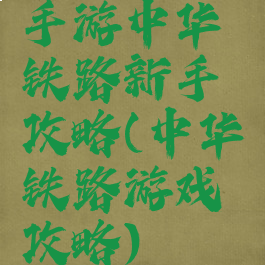 手游中华
铁路新手
攻略(中华
铁路游戏
攻略)